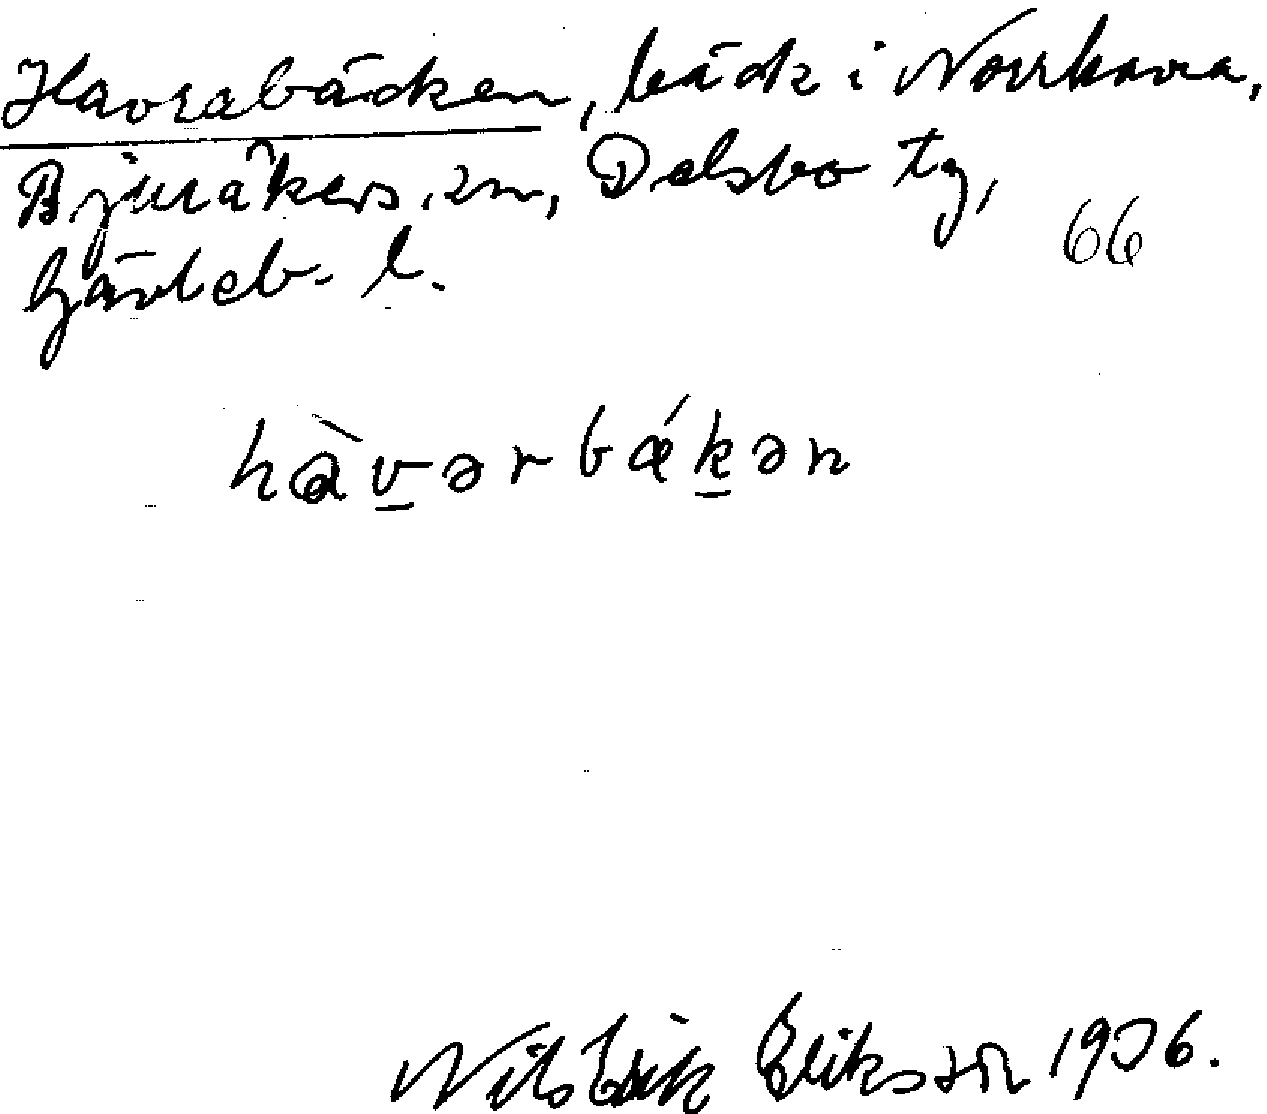 Havrabäcken, bäck i Norrhavra,
Bjuråkers sn, Delsbo tg,
Gävleb. l.
66
hàvərbǽkən
Nils Erik Eriksson 1936.